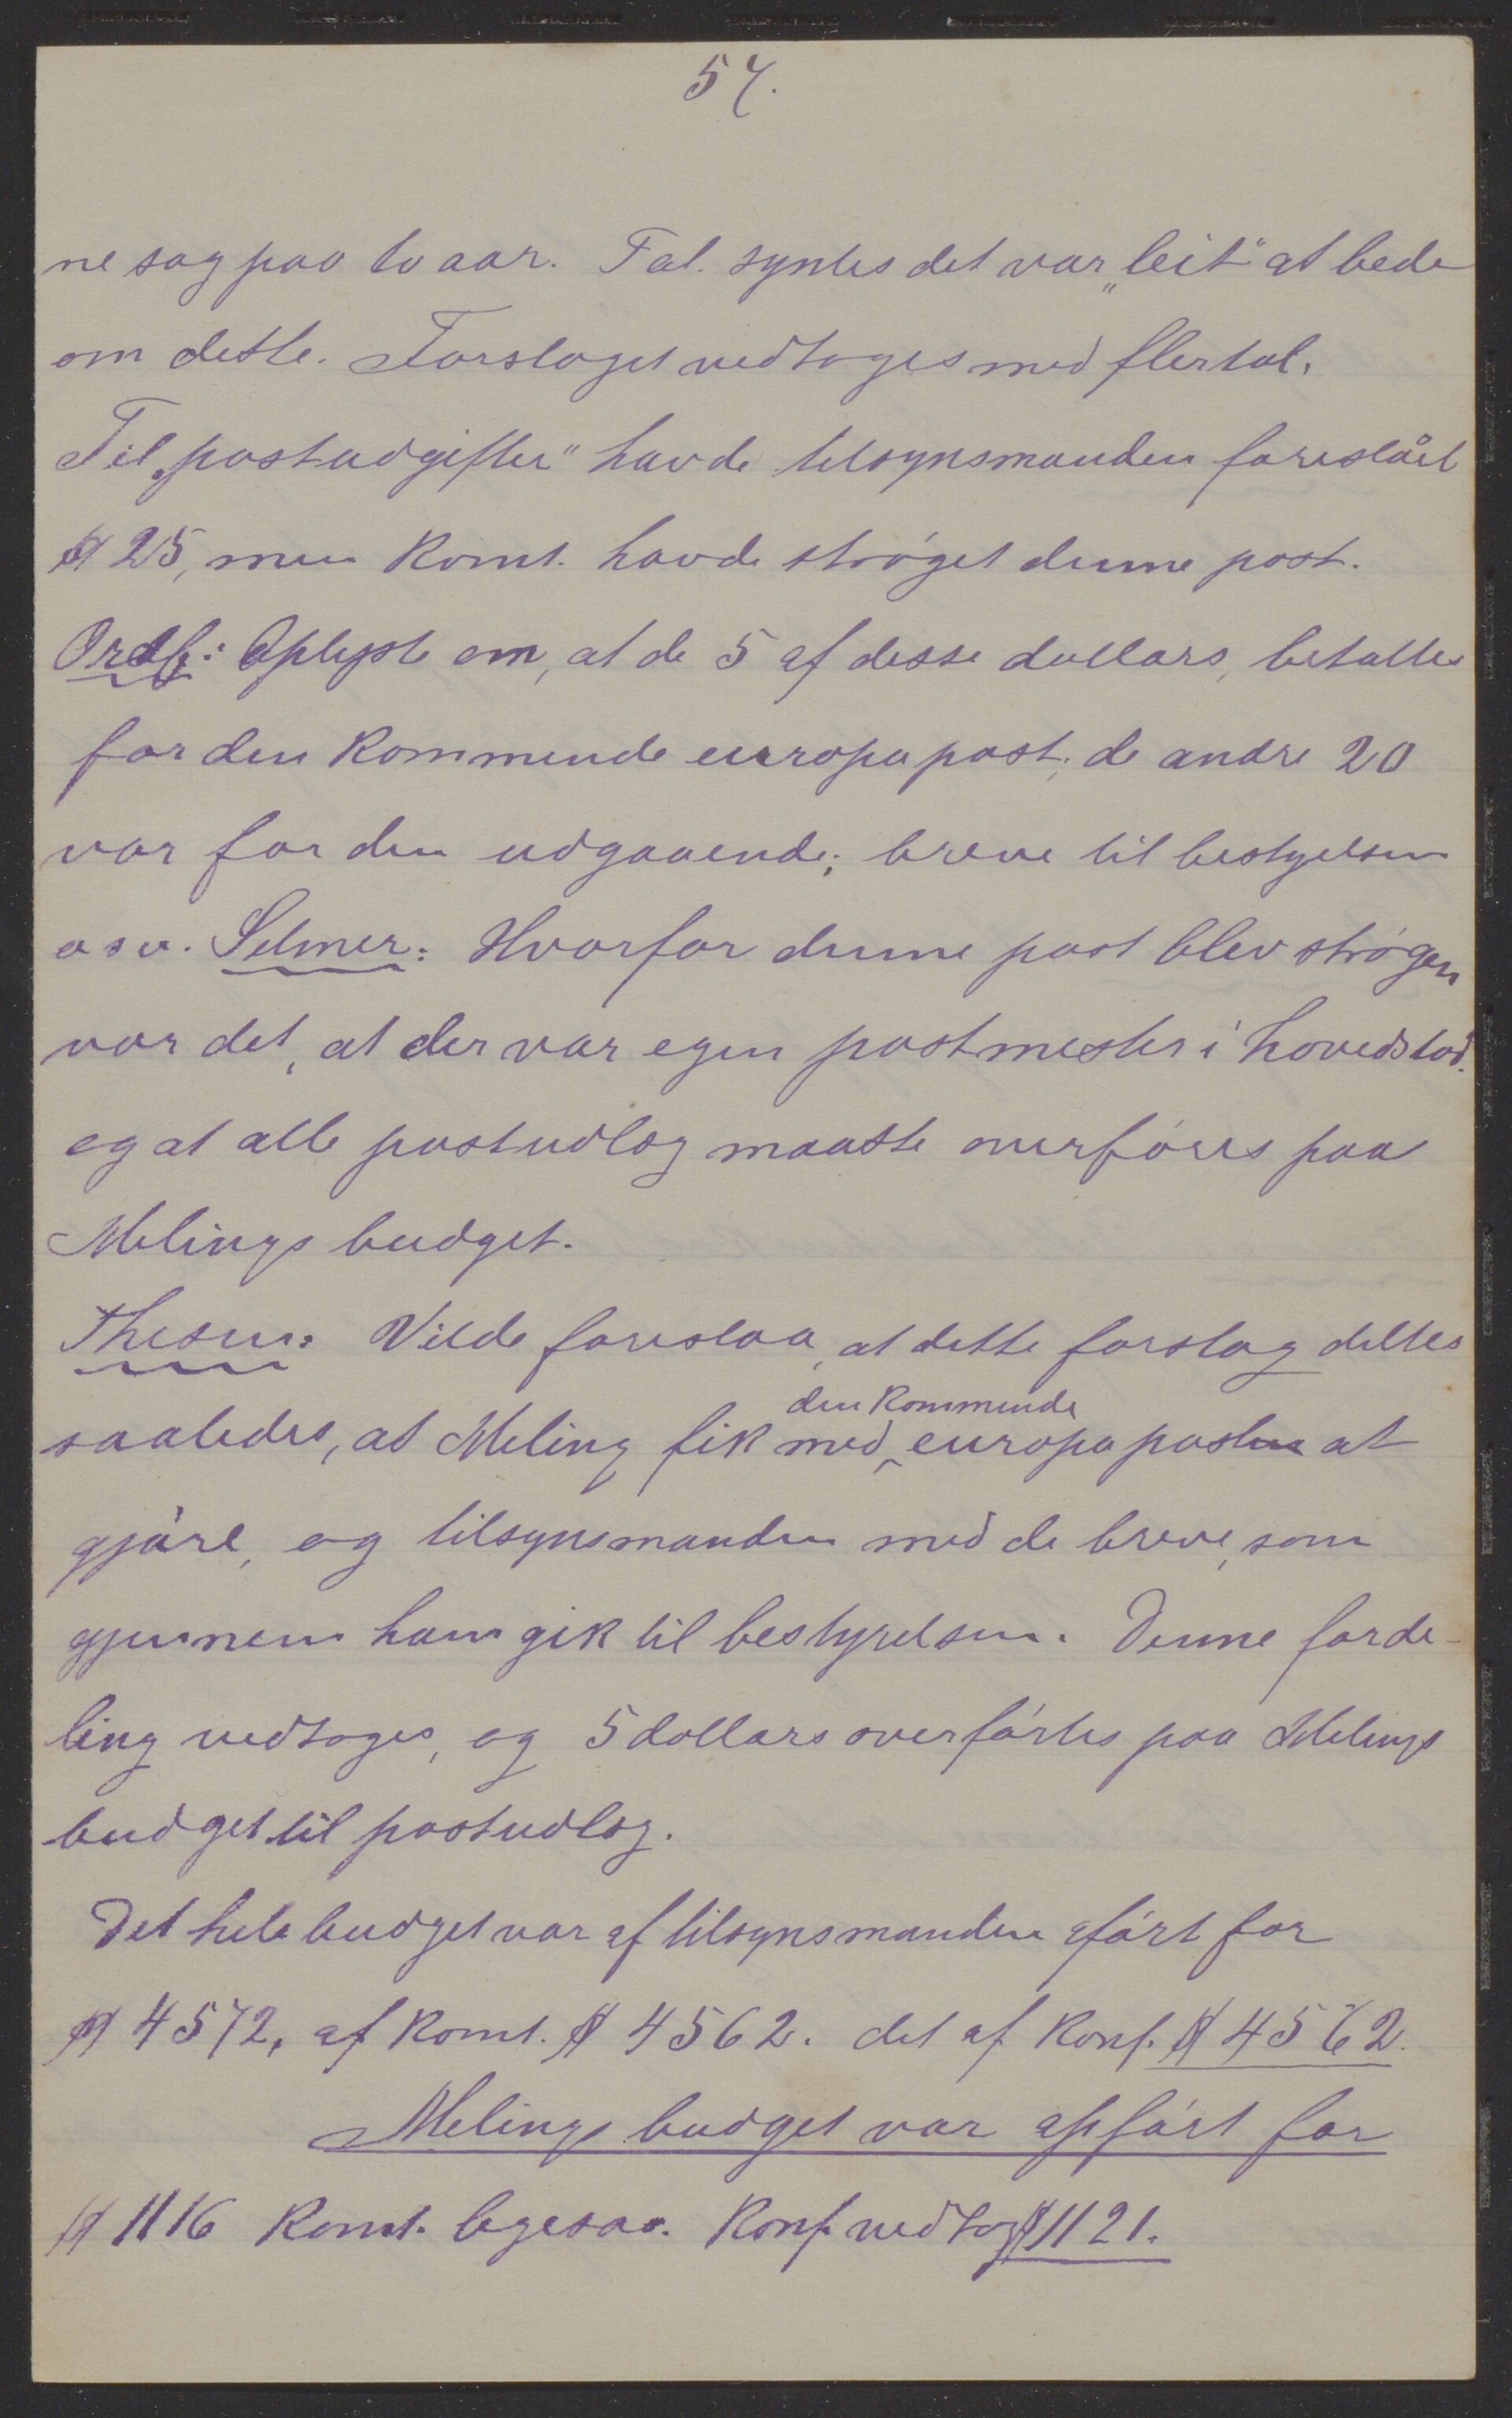 57.
ne sag paa to aar. Tal. syntes det var „leit" at bede
om dette. Forslaget vedtoges med flertal.
Til „postudgifter" havde tilsynsmanden foreslået
$ 25, men Komt. havde strøget denne post.
Ordf: Oplyste om, at de 5 af disse dollars, betaltes
for den kommende europapost; de andre 20
var for den udgaaende; breve til bestyelsen
osv. Selmer: Hvorfor denne post blev strøgen
var det, at der var egen postmester i hovedstad.
og at alle postudlæg maatte overføres paa
Melings budget.
Thesen: Vilde foreslaa, at dette forslag deltes
saaledes, at Meling fik med den kommende europaposten at
gjøre, og tilsynsmanden med de breve, som
gjennem ham gik til bestyrelsen. Denne forde-
ling vedtoges, og 5 dollars overførtes paa Melings
budget til postudlæg.
Det hele budget var af tilsynsmanden ført for
$ 4572, af Komt. $ 4562. det af Konf. $ 4562.
Melings budget var opført for
$ 1116 Komt. ligesaa. Konf. vedtog $ 1121.